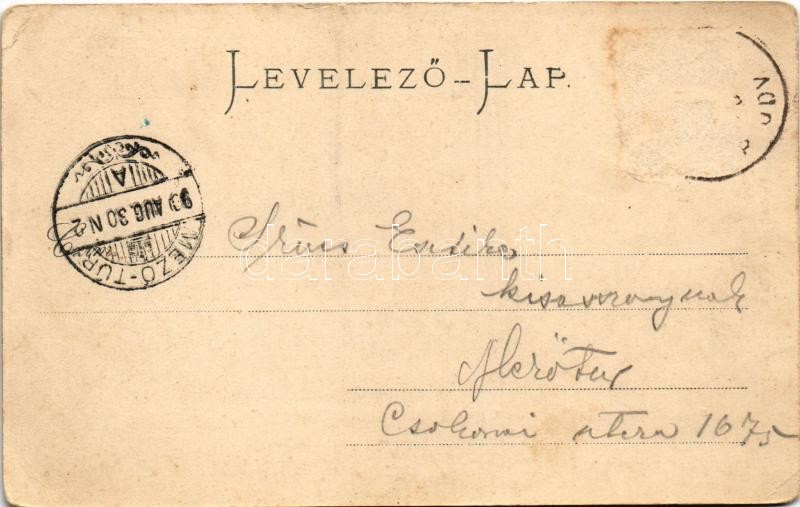 LEVELEZŐ-LAP.
MEZŐ-TUR
AUG. 30 N 2
A
Szücs Esztike
kisasszonynak
Mezőtur
Csokonai utcza 1675
darabanth